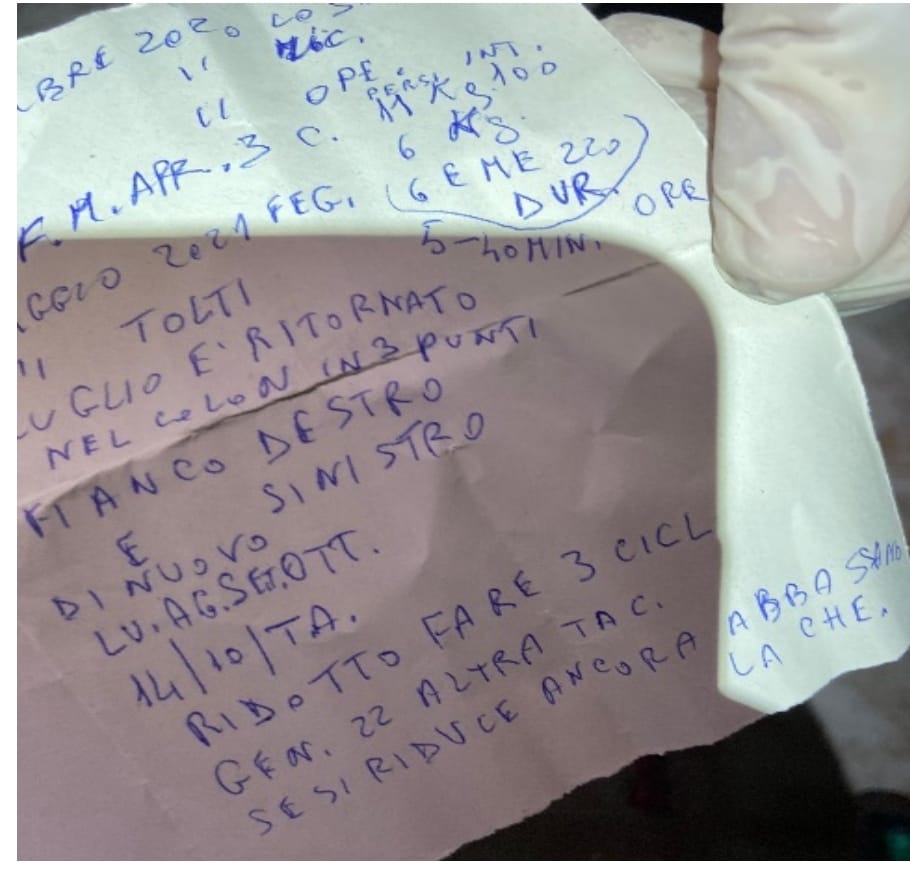 BRE 2020
" MIC.
" OPE. PERSI INT.
F. M. APR. 3 C. 11 KG. 100
6 KG.
2021 FEG. (6 E ME 220)
DUR. ORE
5-40 MIN.
" TOLTI
LUGLIO E' RITORNATO
NEL COLON IN 3 PUNTI
FIANCO DESTRO
E SINISTRO
DI NUOVO
LU. AG. SET. OTT.
14/10/TA.
RIDOTTO FARE 3 CICL
GEN. 22 ALTRA TAC.
SE SI RIDUCE ANCORA ABBASSANO
LA CHE.